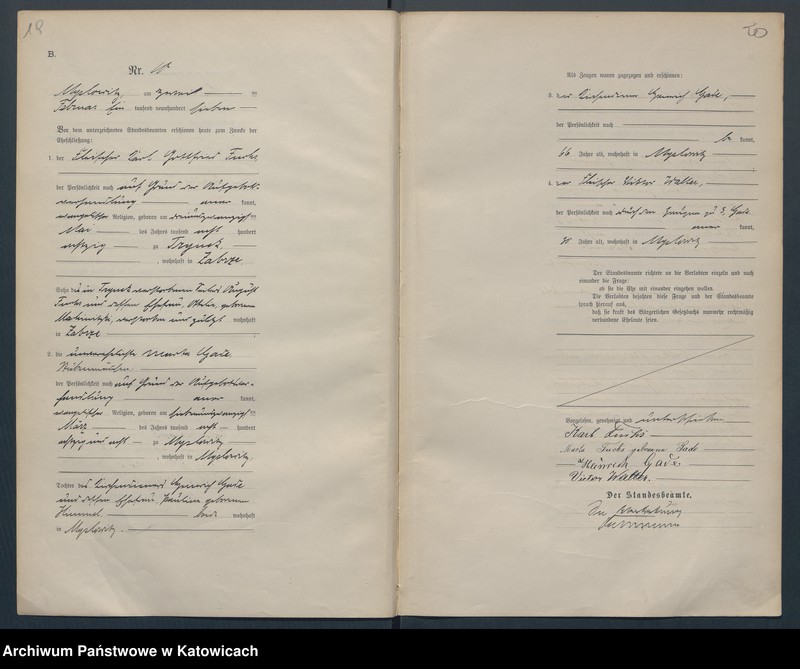 19
B.
Nr.
Myslowitz, am zwei ten
Februar ein tausend neunhundert sieben
Vor dem unterzeichneten Standesbeamten erschienen heute zum Zwecke der
Eheschließung:
1. der Fleischer Carl Gottfried Fuchs,
der Persönlichkeit nach auf Grund der Aufgebots-
verhandlung aner kannt,
evangelischer Religion, geboren am dreiundzwanzig sten
Mai des Jahres tausend acht hundert
achtzig zu Trynek
, wohnhaft in Zabrze
Sohn des in Trynek verstorbenen August
Fuchs und dessen Ehefrau, geborenen
verstorben und zuletzt wohnhaft
in Zabrze
2. die unverehelichte Martha Gade,
der Persönlichkeit nach auf Grund der Aufgebotsver-
handlung aner kannt,
evangelischer Religion, geboren am siebenundzwanzig sten
März des Jahres tausend acht hundert
achtzig und acht zu Myslowitz
, wohnhaft in Myslowitz
Tochter des Heinrich Gade
und dessen Ehefrau, Pauline geborenen
Hummel beide wohnhaft
in Myslowitz.
20
Als Zeugen waren zugezogen und erschienen:
3. der Heinrich Gade,
der Persönlichkeit nach
be kannt,
66 Jahre alt, wohnhaft in Myslowitz
4. der Fleischer Viktor Walter,
der Persönlichkeit nach durch den Zeugen zu 3, Gade
aner kannt,
Jahre alt, wohnhaft in Myslowitz
Der Standesbeamte richtete an die Verlobten einzeln und nach
einander die Frage:
ob sie die Ehe mit einander eingehen wollen.
Die Verlobten bejahten diese Frage und der Standesbeamte
sprach hierauf aus,
daß sie kraft des Bürgerlichen Gesetzbuchs nunmehr rechtmäßig
verbundene Eheleute seien.
Vorgelesen, genehmigt und unterschrieben
Karl Fuchs
Marta Fuchs geborene Gade
Heinrich Gade
Victor Walter.
Der Standesbeamte.
In Vertretung
Archiwum Państwowe w Katowicach